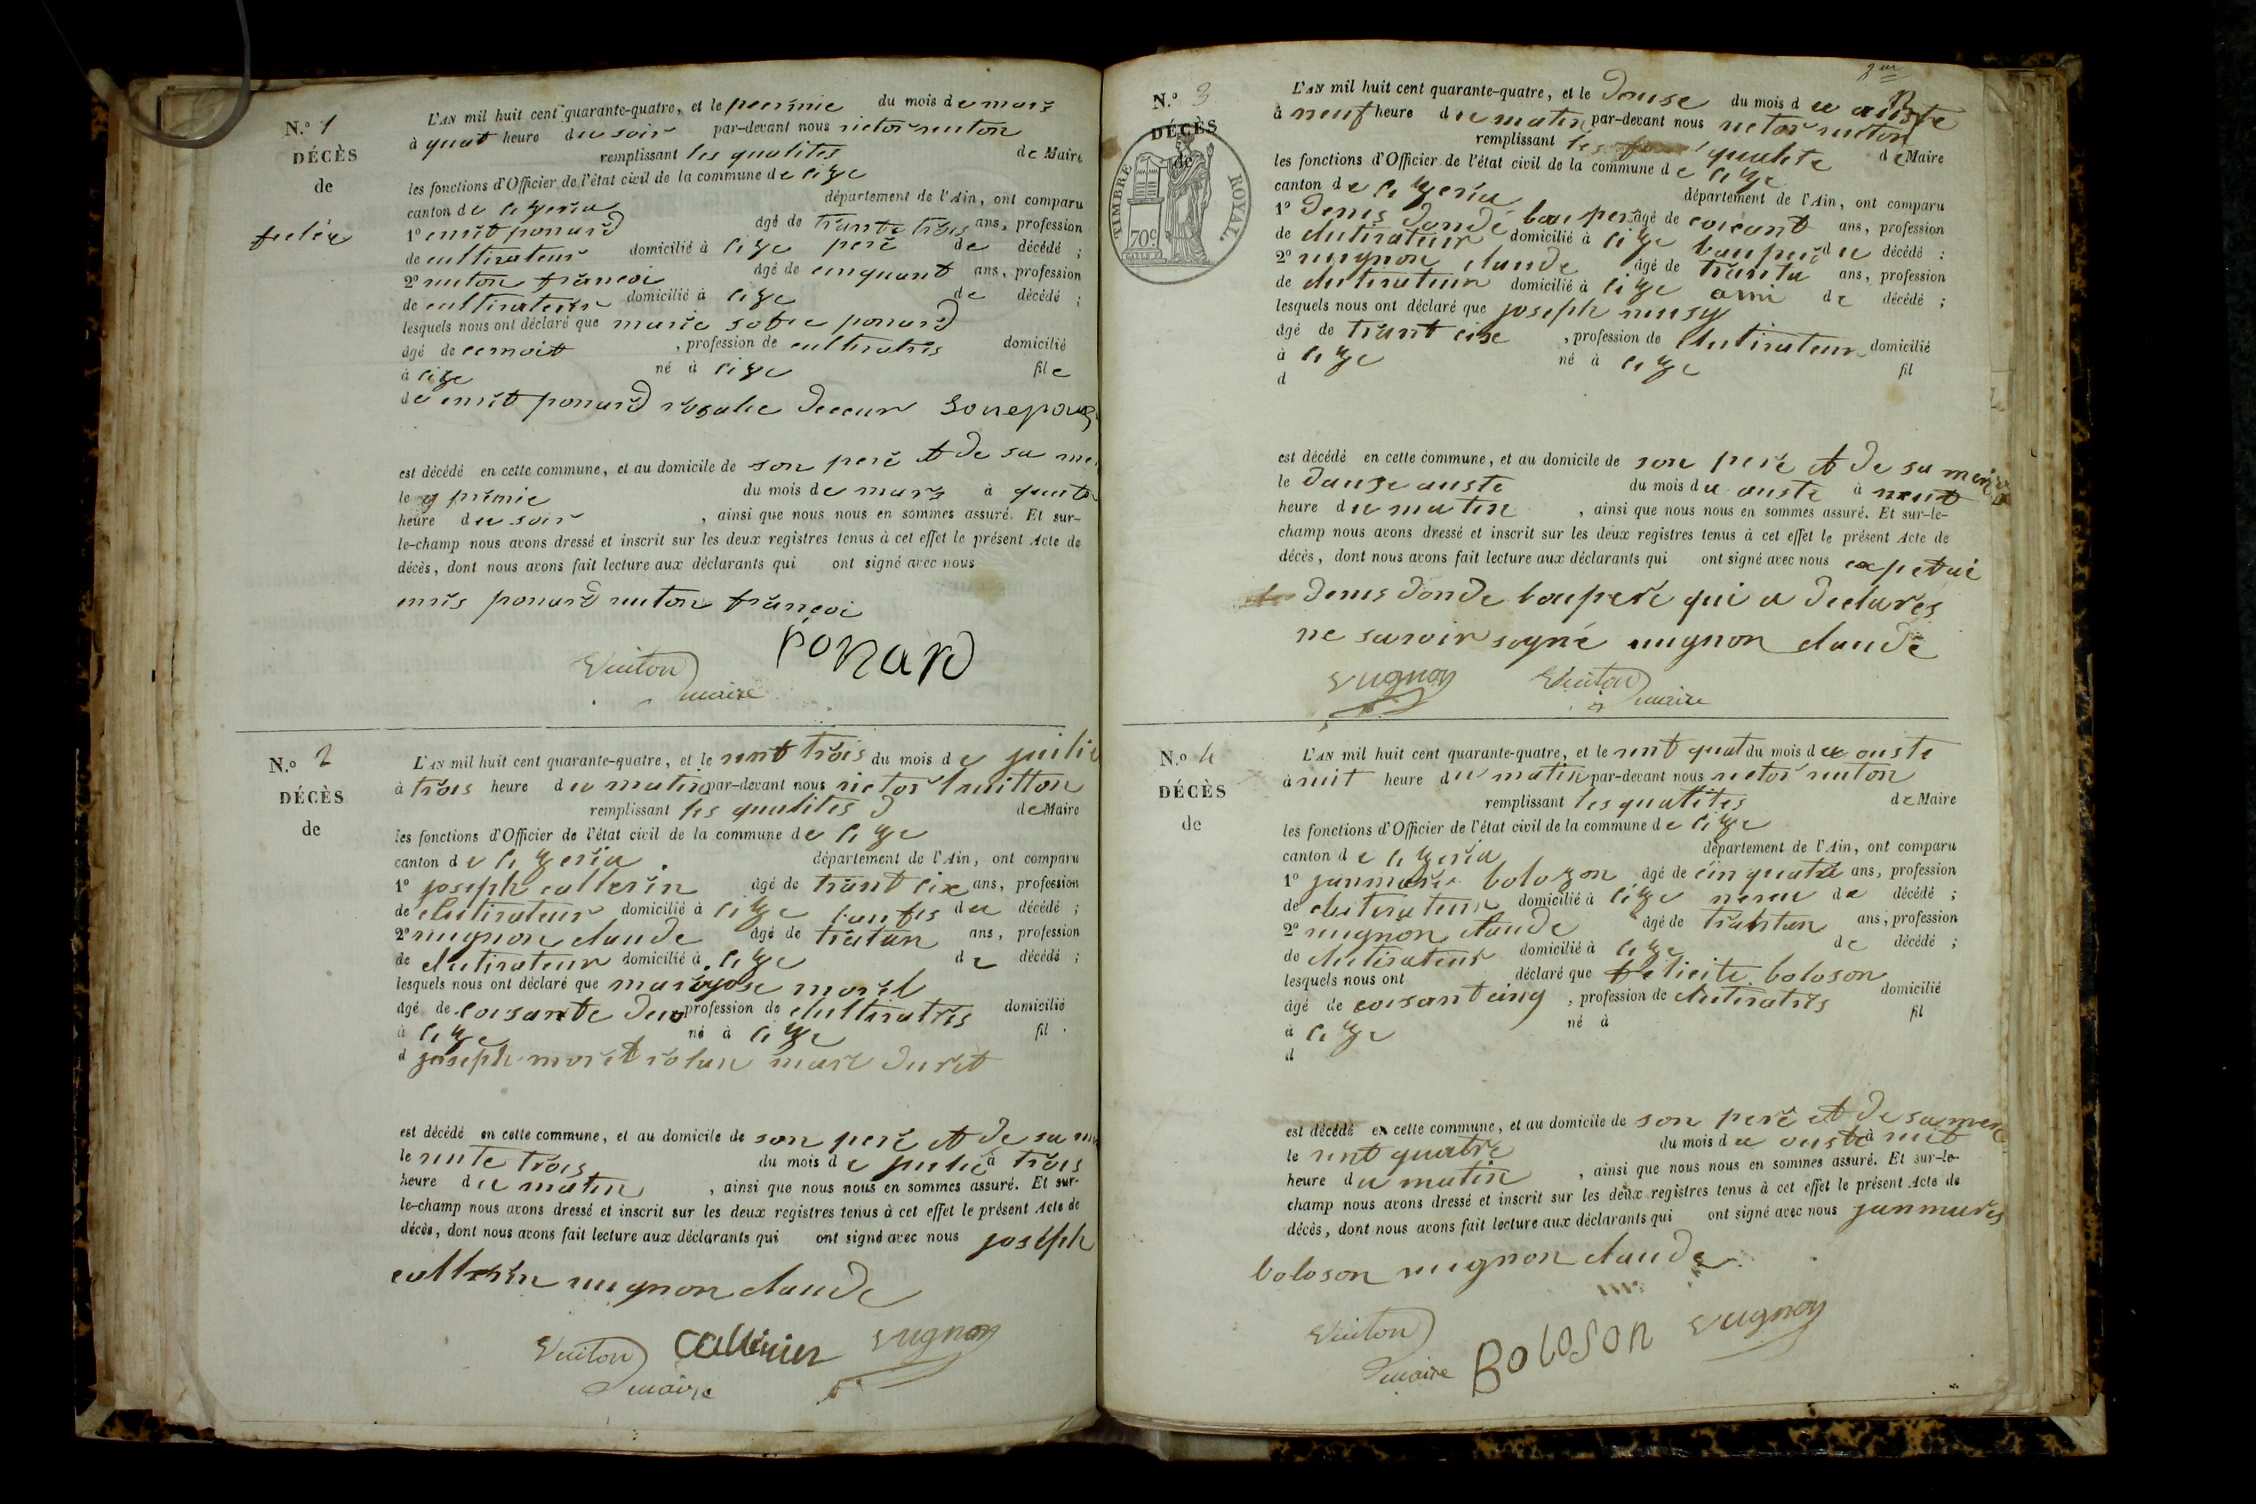 N.° 1
DÉCÈS
de
L'AN mil huit cent quarante-quatre, et le premie du mois de mars
à quat heure du soir par-devant nous victor vuiton
remplissant les qualites de Maire
les fonctions d'Officier de l'état civil de la commune de cize
canton de ceyzeria département de l'Ain, ont comparu
1° ponard âgé de trante trois ans, profession
de cultivateur domicilié à cize perë de décédé ;
2° vuiton françoi âgé de cinquant ans, profession
de cultivateur domicilié à cize de décédé ;
lesquels nous ont déclaré que marie sofie ponard
âgé de , profession de cultivatris domicilié
à cize né à cize file
de ponard rosalie
est décédé en cette commune, et au domicile de son perë et de sa
le primie du mois de mars à
heure du soir , ainsi que nous nous en sommes assuré. Et sur-
le-champ nous avons dressé et inscrit sur les deux registres tenus à cet effet le présent Acte de
décès, dont nous avons fait lecture aux déclarants qui ont signé avec nous
ponard vuiton françoi
Ponard
Vuiton
maire
N.° 2
DÉCÈS
de
L'AN mil huit cent quarante-quatre, et le vint trois du mois de
à trois heure du matin par-devant nous victor vuitton
remplissant les qualites de Maire
les fonctions d'Officier de l'état civil de la commune de cize
canton de ceyzeria département de l'Ain, ont comparu
1° joseph âgé de trant cix ans, profession
de clutivateur domicilié à cize du décédé ;
2° vugnon claude âgé de ans, profession
de clutivateur domicilié à cize de décédé ;
lesquels nous ont déclaré que
âgé de coisante profession de clultivatris domicilié
à cize né à cize fil
d joseph
est décédé en cette commune, et au domicile de son perë et de sa
le vinte trois du mois de à trois
heure du matin , ainsi que nous nous en sommes assuré. Et sur-
le-champ nous avons dressé et inscrit sur les deux registres tenus à cet effet le présent Acte de
décès, dont nous avons fait lecture aux déclarants qui ont signé avec nous joseph
vugnon claude
Vuiton Vugnon
maire
N.° 3
DÉCÈS
de
TIMBRE ROYAL
70c
L'AN mil huit cent quarante-quatre, et le douse du mois d
à neuf heure du matin par-devant nous victor vuiton
remplissant les qualite de Maire
les fonctions d'Officier de l'état civil de la commune de cize
canton de ceyzeria département de l'Ain, ont comparu
1° denis dondé bau perë âgé de ans, profession
de clutivateur domicilié à cize bauperë du décédé ;
2° vugnon claude âgé de tranta ans, profession
de clutivateur domicilié à cize ami de décédé ;
lesquels nous ont déclaré que joseph
âgé de trant cise , profession de clutivateur domicilié
à cize né à cize fil
d
est décédé en cette commune, et au domicile de son perë et de sa
le dause auste du mois du auste à neuf
heure du matin , ainsi que nous nous en sommes assuré. Et sur-le-
champ nous avons dressé et inscrit sur les deux registres tenus à cet effet le présent Acte de
décès, dont nous avons fait lecture aux déclarants qui ont signé avec nous
denis donde bouperë qui a declarës
ne savoir sogné vugnon claude
Vugnon Vuiton
maire
N.° 4
DÉCÈS
de
L'AN mil huit cent quarante-quatre, et le vint quat du mois du ouste
à nuit heure du matin par-devant nous victor vuiton
remplissant les qualites de Maire
les fonctions d'Officier de l'état civil de la commune de cize
canton de ceyzeria département de l'Ain, ont comparu
1° bolozon âgé de cinquatre ans, profession
de clutivateur domicilié à cize neveu de décédé ;
2° vugnon claude âgé de ans, profession
de clutivateur domicilié à cize de décédé ;
lesquels nous ont déclaré que felicite boloson
âgé de coisant cinq , profession de clutivatris domicilié
à cize né à fil
d
est décédé en cette commune, et au domicile de son perë et de sa mere
le vint quatre du mois du ouste à nuit
heure du matin , ainsi que nous nous en sommes assuré. Et sur-le-
champ nous avons dressé et inscrit sur les deux registres tenus à cet effet le présent Acte de
décès, dont nous avons fait lecture aux déclarants qui ont signé avec nous
boloson vugnon claude
Vuiton
maire Boloson Vugnon